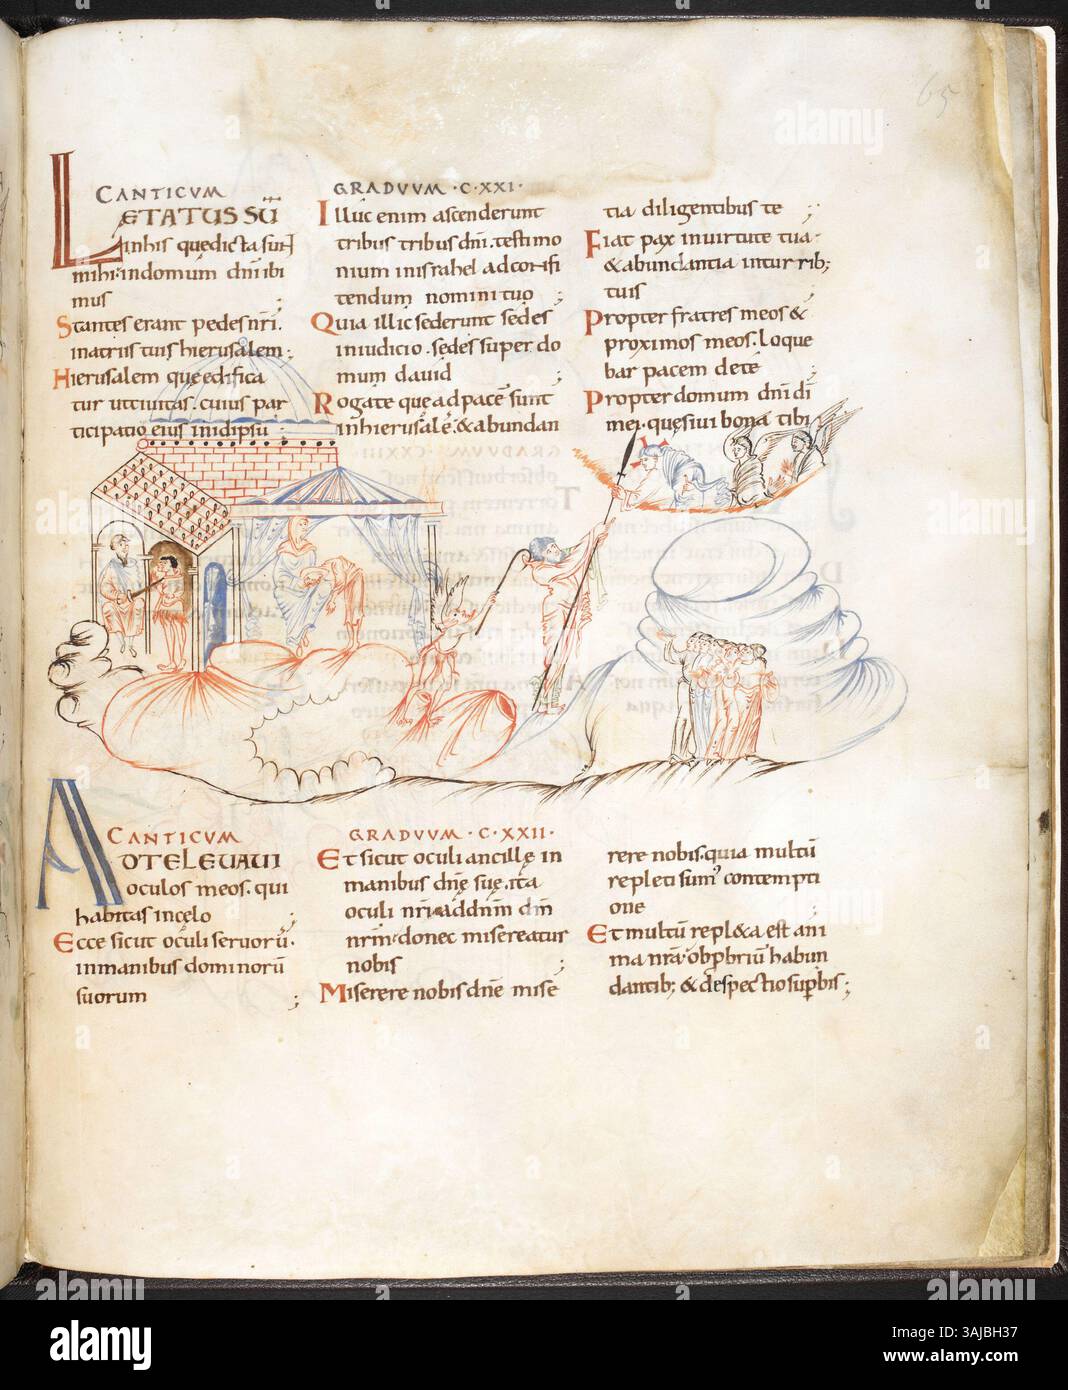 65
CANTICVM GRADVVM·C·XXI·
LETATUS SŪ
INhis quedicta sun
mihi·indomum dn̄i ibi
mus ;
Stantes erant pedes nr̄i·
inatriis tuis hierusalem;
Hierusalem que edifica
tur utciuitas· cuius par
ticipatio eius inidipsū
Illuc enim ascenderunt
tribus tribus dn̄i· testimo
nium inisrahel adconfi
tendum nomini tuo ;
Quia illic sederunt sedes
iniudicio· sedes super do
mum dauid ;
Rogate que adpacē sunt
inhierusalē· & abundan
tia diligentibus te ;
Fiat pax inuirtute tua·
& abundantia inturrib;
tuis ;
Propter fratres meos &
proximos meos· loque
bar pacem detē ;
Propter domum dn̄i dī
mei· quesiui bona tibi
CANTICVM GRADVVM·C·XXII·
AD TE LEUAUI
oculos meos· qui
habitas incelo ;
Ecce sicut oculi seruorū·
inmanibus dominorū
suorum ;
Et sicut oculi ancillę in
manibus dn̄ę suę· ita
oculi nr̄i addn̄m dm̄
nr̄m· donec misereatur
nobis ;
Miserere nobis dn̄e mise
rere nobis· quia multū
repleti sum᾿ contempti
one ;
Et multū repl&a est ani
ma nr̄a· obp̄briū habun
dantib; & despectio sup̄bis;
alamy
Image ID: 3AJBH37
www.alamy.com